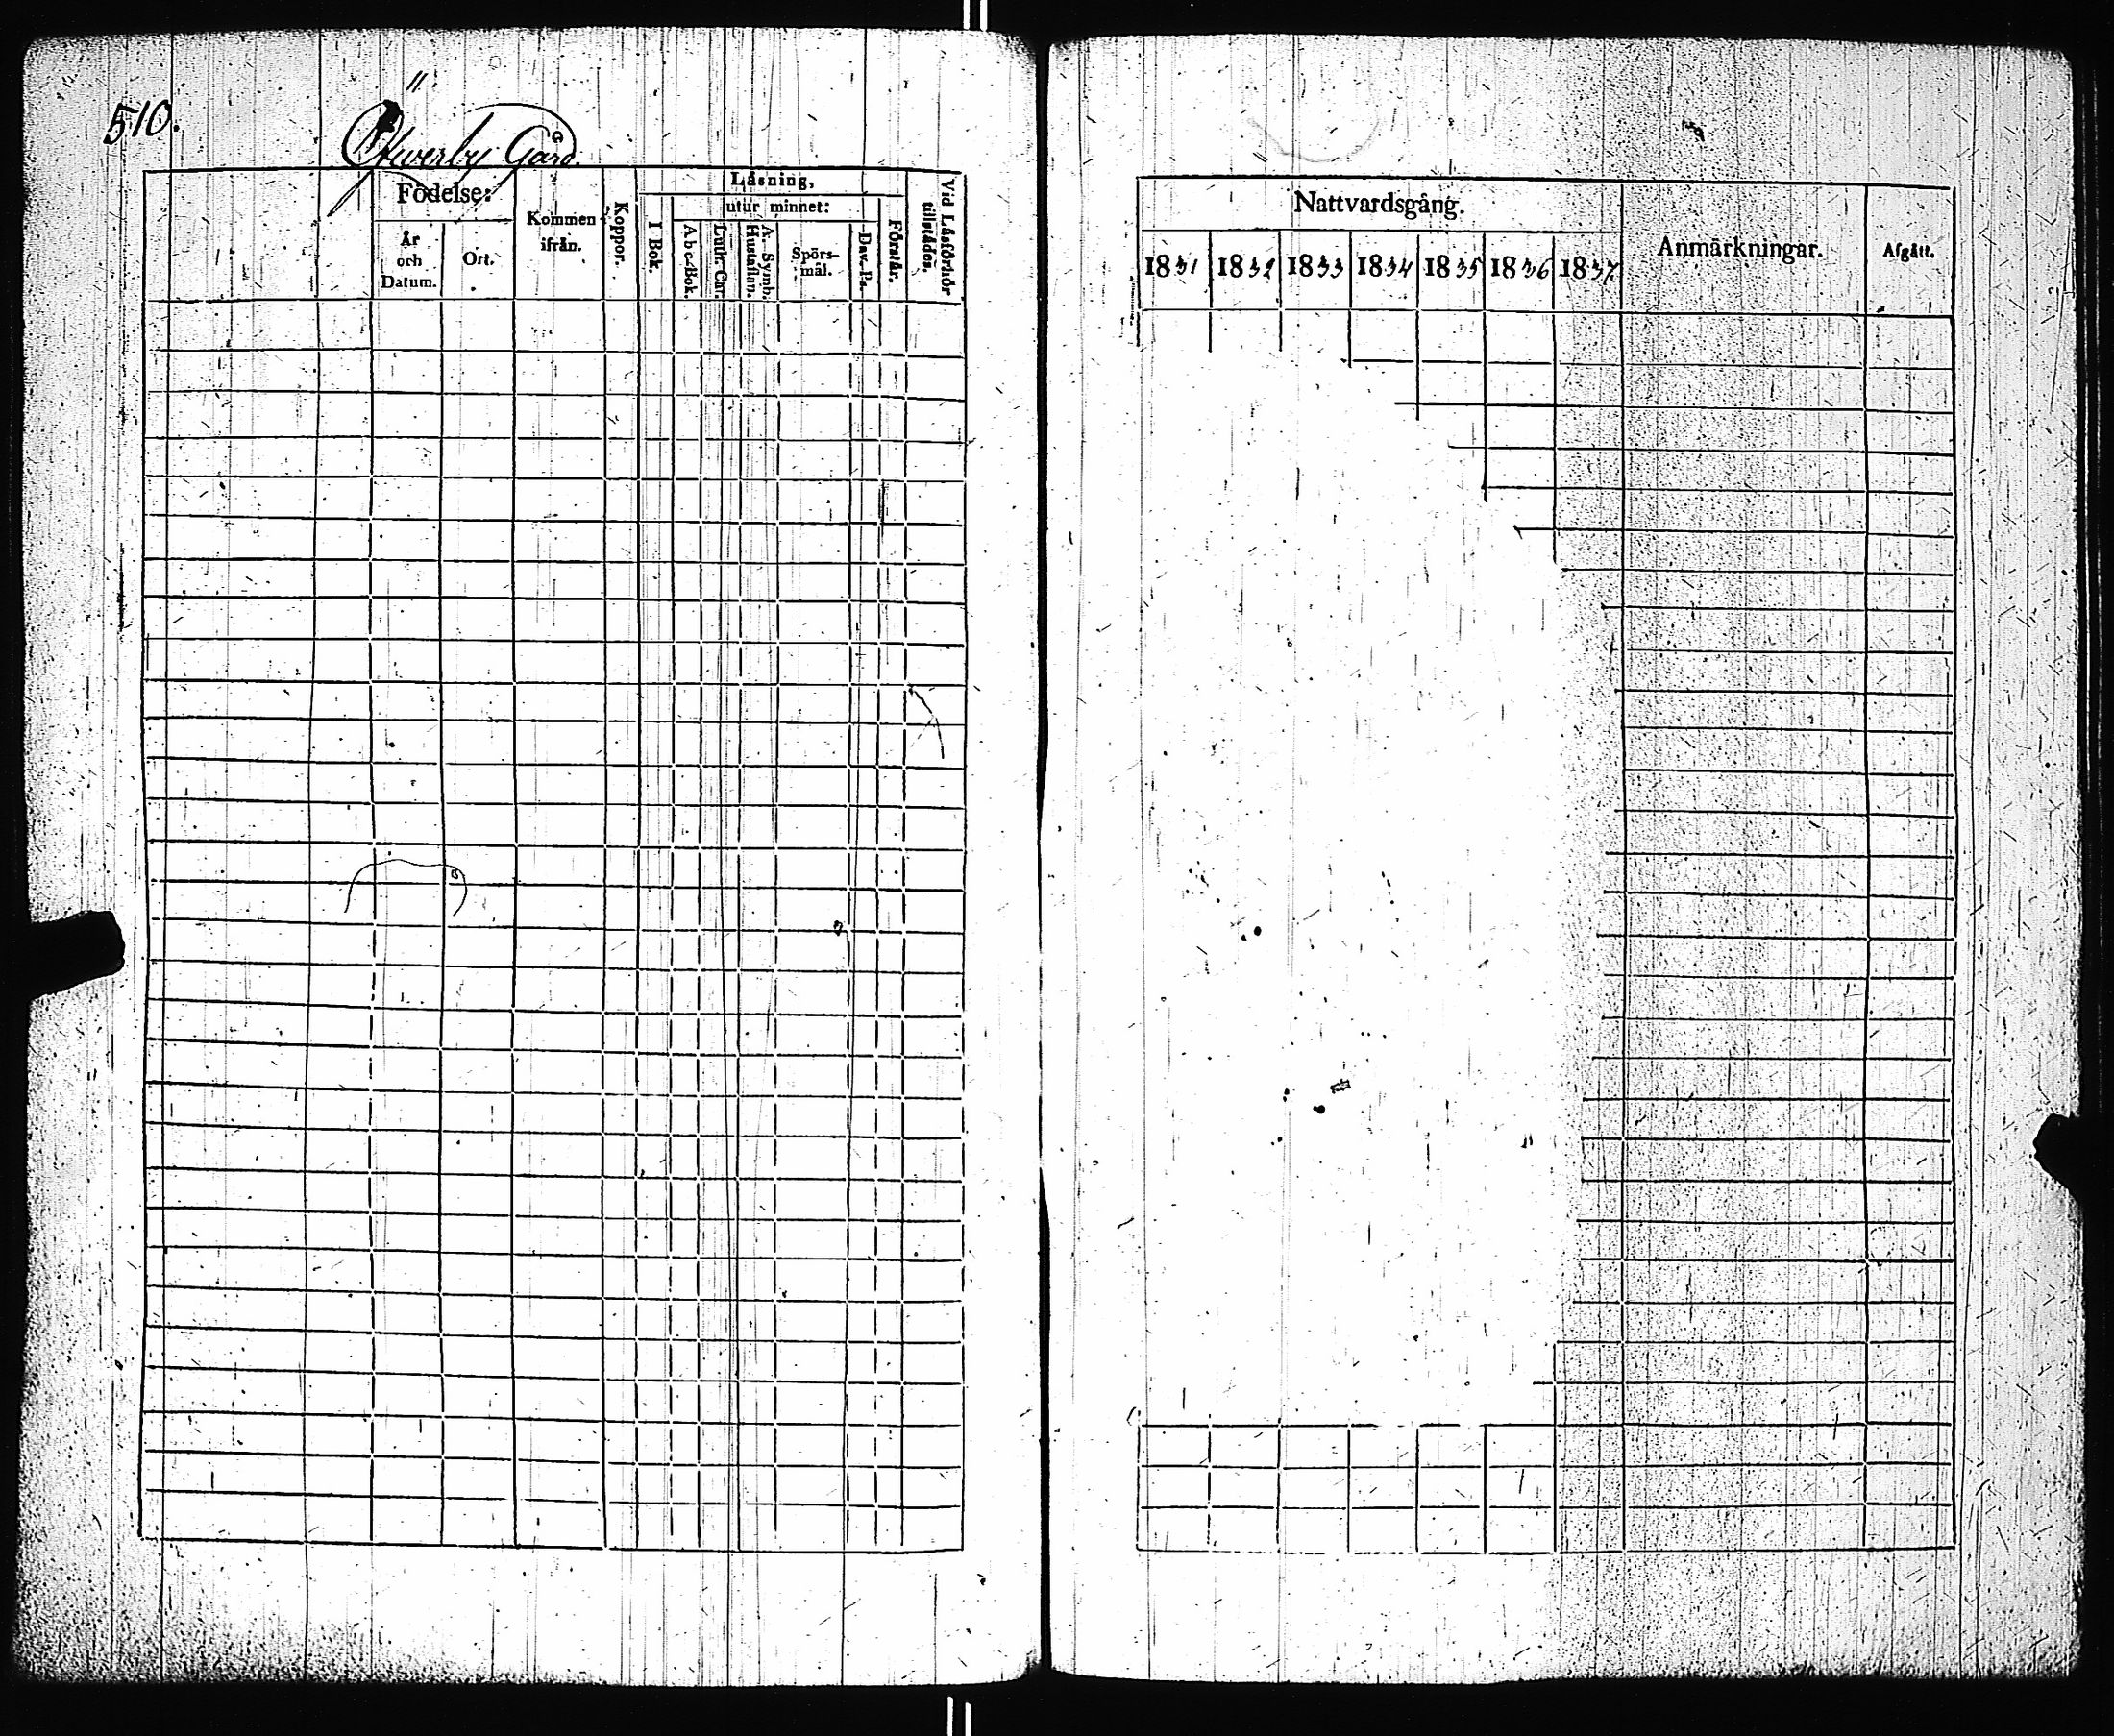 510.
Öfwerby Gård.
Födelse:
År
och
Datum.
Ort.
Kommen
ifrån.
Koppor.
Läsning,
utur minnet:
I Bok.
A b c-Bok.
Luth. Cat.
A. Symb.
Hustaflan.
Spörs-
mål.
Dav. Ps.
Förstår.
Vid Läsförhör
tillstädes.
Nattvardsgång.
1831 1832 1833 1834 1835 1836 1837
Anmärkningar.
Afgått.